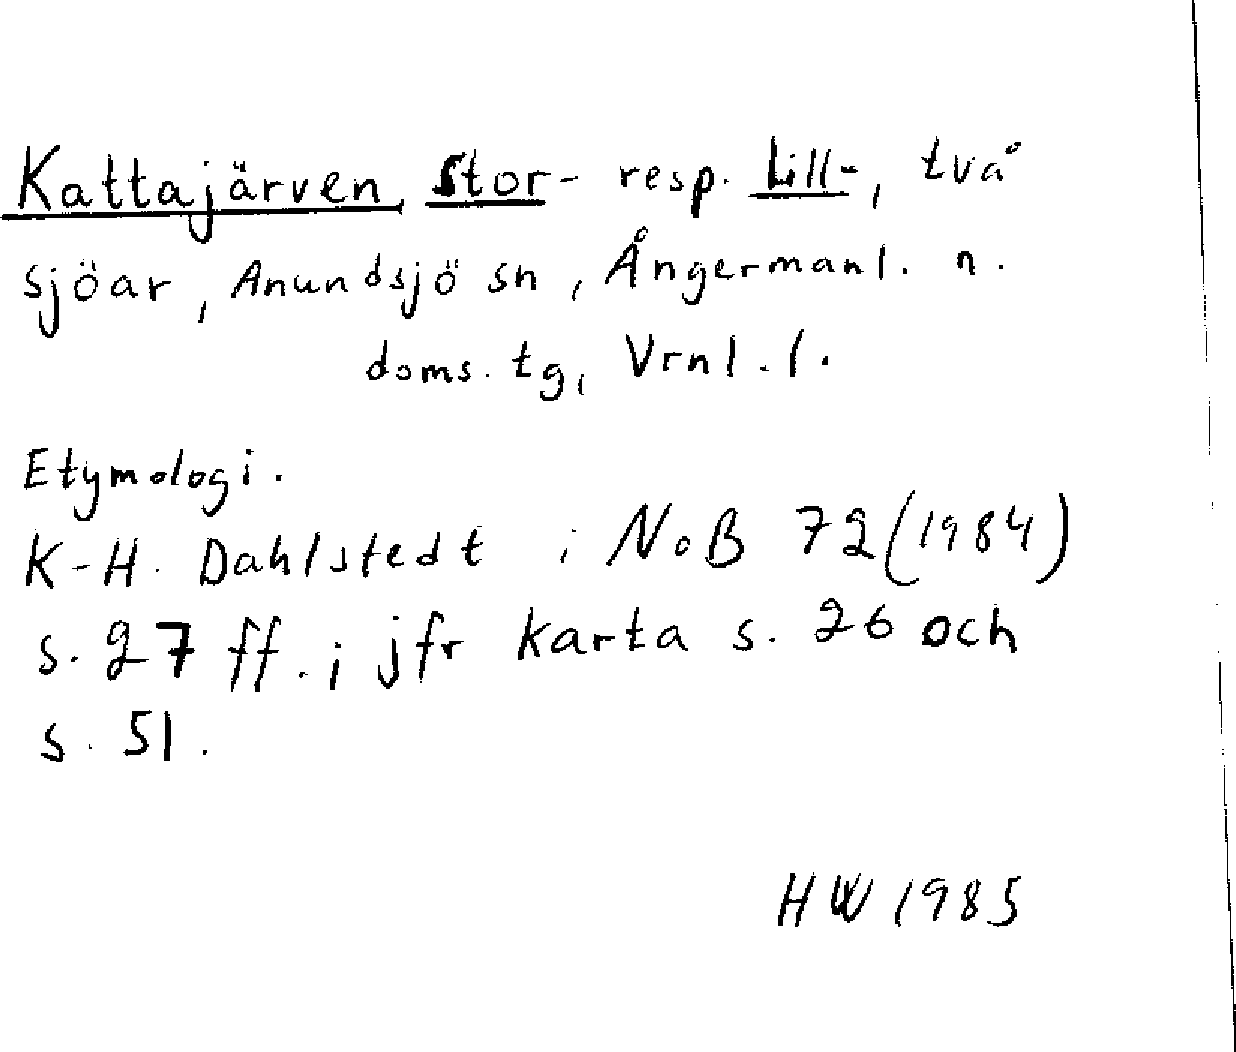 Kattajärven, Stor- resp. Lill-, två
sjöar, Anundsjö sn, Ångermanl. n.
doms. tg, Vrnl. l.
Etymologi.
K-H. Dahlstedt i NoB 72 (1984)
s. 27 ff.; jfr karta s. 26 och
s. 51.
HW 1985